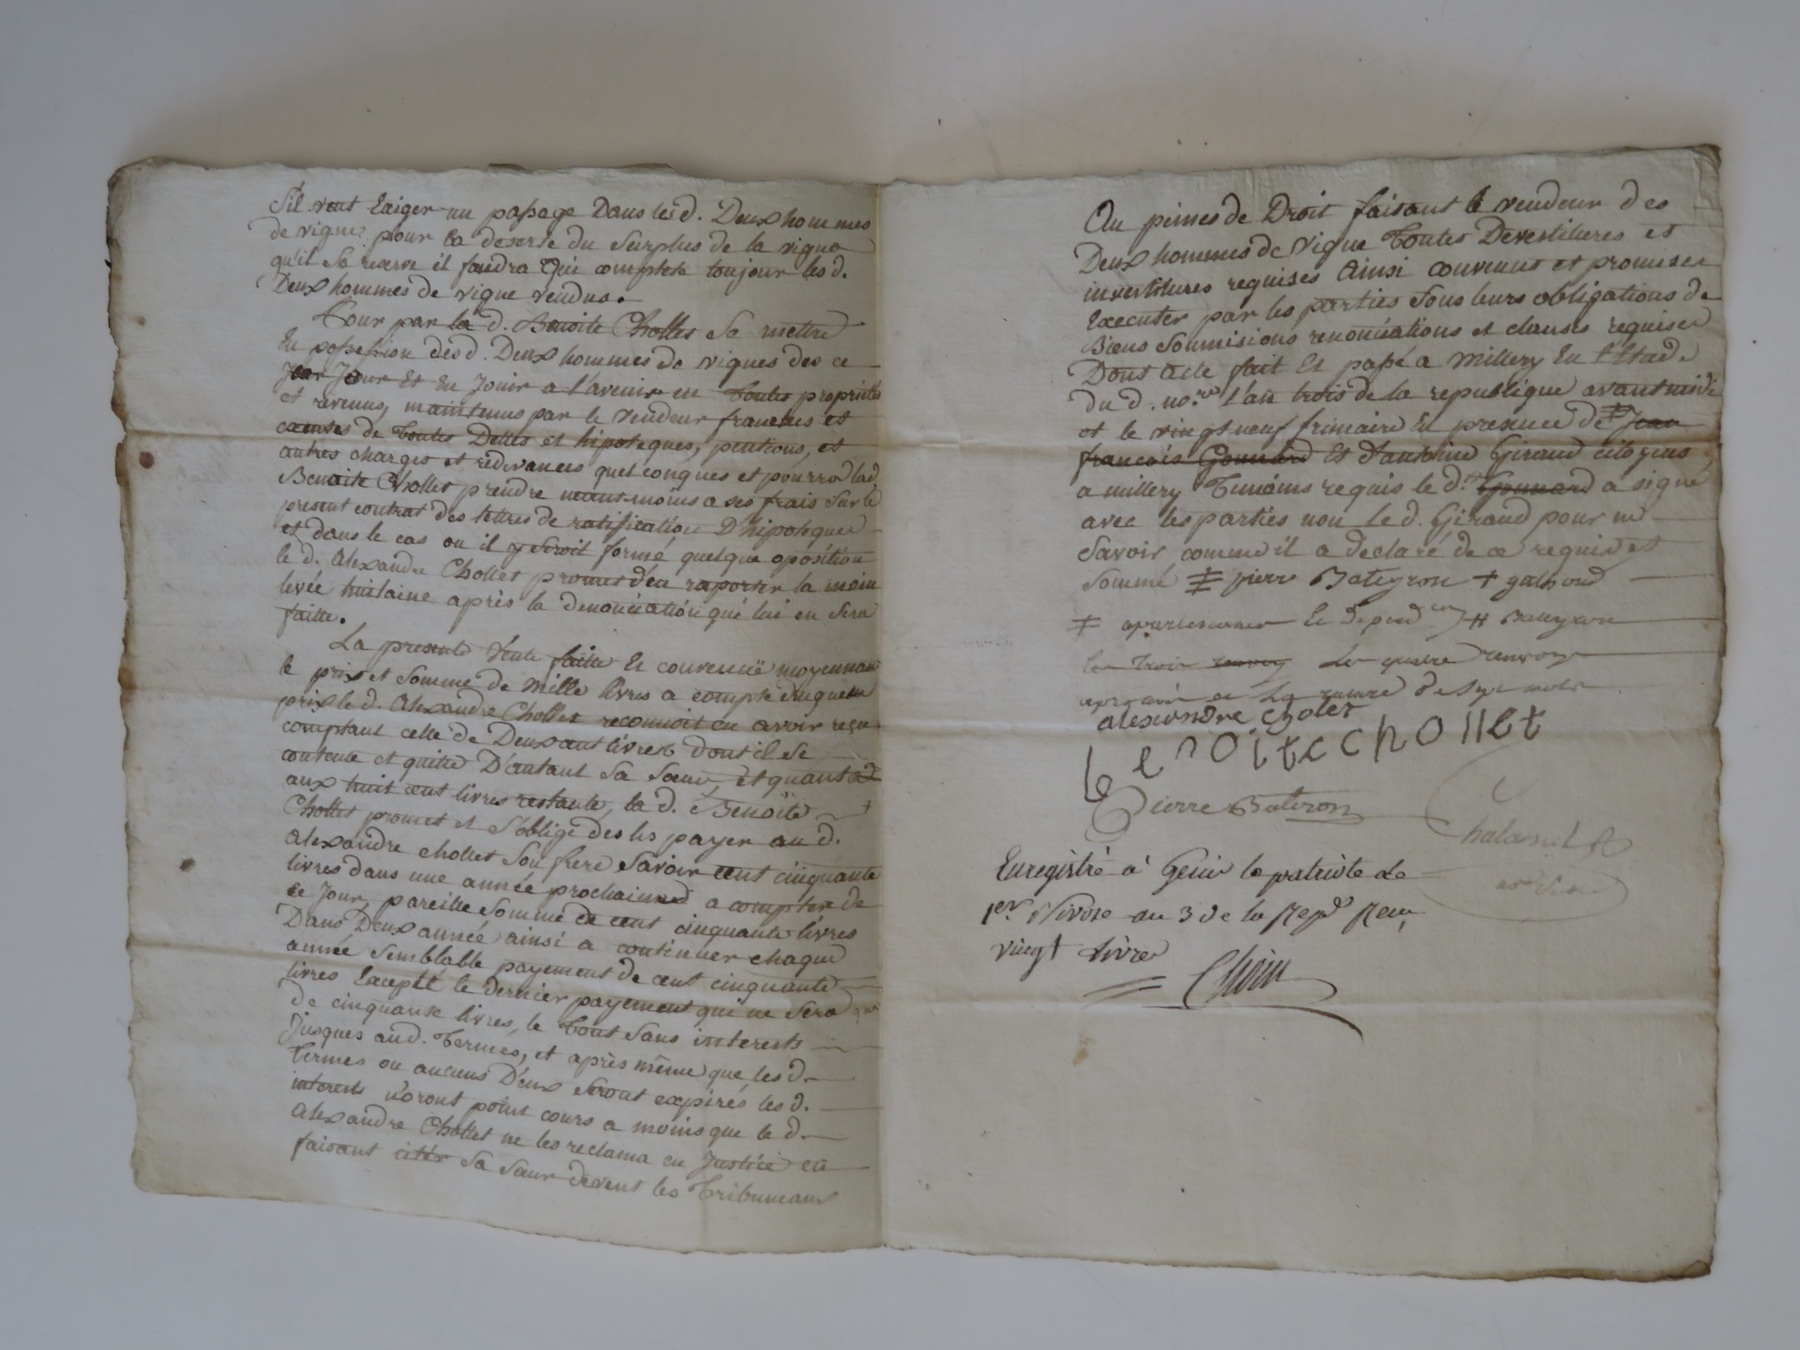 S'il veut Exiger un passage Dans les d. Deux hommes
de vigne pour la deserte du Surplus de la vigne
qu'il Se reserve il faudra qu'il complette toujour les d.
Deux hommes de vigne vendus.
Pour par la d. Benoite Chollet Se mettre
En possession des d. Deux hommes de vignes des ce
Jour Et En Jouir a l'avenir en Toutes proprietés
et revenus, maintenus par le vendeur francs et
exempts de Toutes Dettes et hipoteques, pentions, et
autres charges et redevances quelconques et pourra lad.
Benoite Chollet prendre neant-moins a ses frais Sur le
present contrat des lettres de ratification D'hipoteques
et dans le cas ou il y Seroit formé quelque oposition
le d. Alexandre Chollet promet d'en raporter la main
levée huitaine après la denonciation qui lui en Sera
faitte.
La presente Vente faitte Et convenuë moyennant
le prix et Somme de Mille livres a compte duquel
prix le d. Alexandre Chollet reconnoit en avoir reçu
comptant celle de Deux cent livres dont il Se
contente et quitte D'autant Sa Sœur, et quant
aux huit cent livres restante, la d. Benoite
Chollet promet et S'oblige des les payer au d.
Alexandre Chollet Son frere Savoir cent cinquante
livres dans une année prochaine a compter de
ce Jour, pareille Somme de cent cinquante livres
Dans Deux année ainsi a continuer chaque
année Semblable payement de cent cinquante
livres Excepté le dernier payement qui ne Sera que
De cinquante livres, le Tout Sans interests
Jusques aud. Termes, et après même que les d.
Termes ou aucuns D'eux Seront expirés les d.
interests n'oront point cours a moins que le d.
Alexandre Chollet ne les reclama en Justice en
faisant citter Sa Sœur devent les Tribuneaux
Au peines de Droit faisant le vendeur des
Deux hommes de Vigne Toutes Devestitures et
investitures requises Ainsi convenus et promises
Executer par les parties Sous leurs obligations de
Biens Soumisions renonciations et clauses requises
Dont acte fait Et passé a Millery En l'Etude
du d. no.re l'an trois de la republique avant midi
et le vingt neuf frimaire En presence de Jean
francois Gonnard Et d'antoine Giraud citoyens
a millery Temoins requis le d.t Gonnard a signé
avec les parties non le d. Giraud pour ne
Savoir comme il a declaré de ce requis et
Sommé ‡ pierre Bateyron +
‡ Bateyron
les trois renvoy les quatre renvoys
de sept mots
alexandre cholet
benoitecchollet
Pierre Bateron
Chalandt
Enregistré à Genis le patriote le
1er Nivose an 3 de la Repe Reçu
vingt Livres